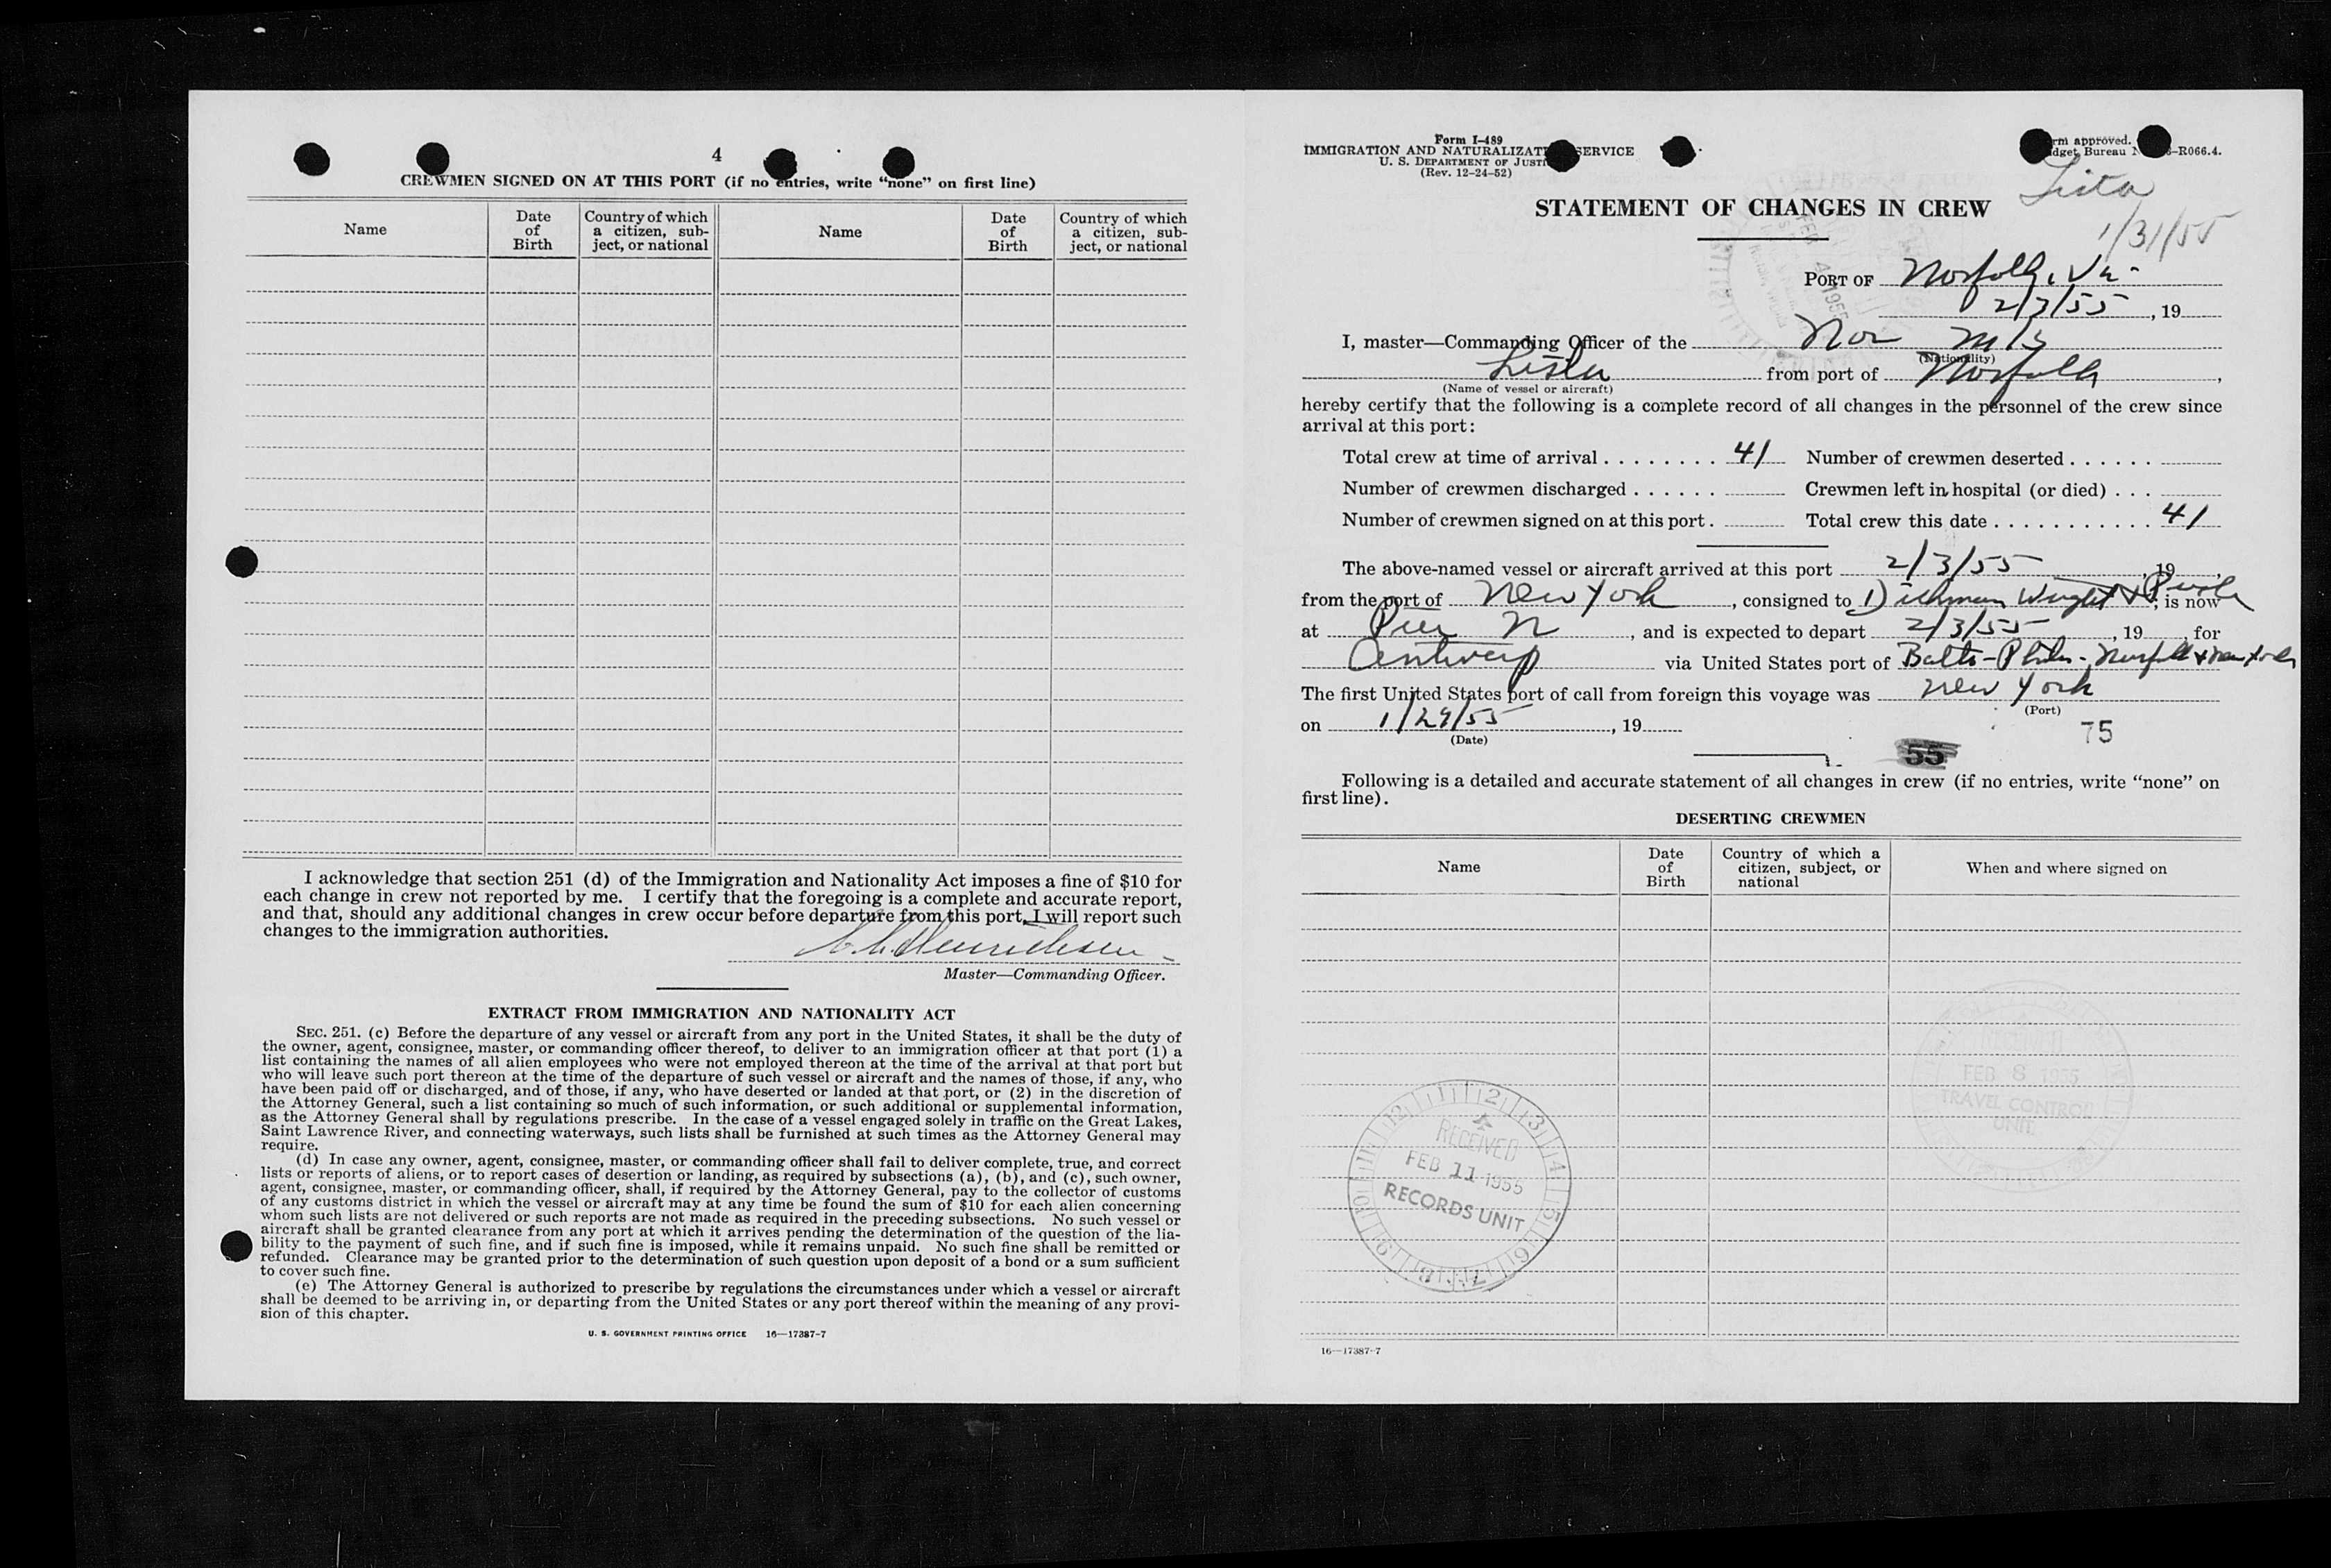 4
CREWMEN SIGNED ON AT THIS PORT (if no entries, write “none” on first line)
Name
Date of Birth
Country of which a citizen, subject, or national
Name
Date of Birth
Country of which a citizen, subject, or national
I acknowledge that section 251 (d) of the Immigration and Nationality Act imposes a fine of $10 for
each change in crew not reported by me. I certify that the foregoing is a complete and accurate report,
and that, should any additional changes in crew occur before departure from this port, I will report such
changes to the immigration authorities.
Master—Commanding Officer.
EXTRACT FROM IMMIGRATION AND NATIONALITY ACT
SEC. 251. (c) Before the departure of any vessel or aircraft from any port in the United States, it shall be the duty of
the owner, agent, consignee, master, or commanding officer thereof, to deliver to an immigration officer at that port (1) a
list containing the names of all alien employees who were not employed thereon at the time of the arrival at that port but
who will leave such port thereon at the time of the departure of such vessel or aircraft and the names of those, if any, who
have been paid off or discharged, and of those, if any, who have deserted or landed at that port, or (2) in the discretion of
the Attorney General, such a list containing so much of such information, or such additional or supplemental information,
as the Attorney General shall by regulations prescribe. In the case of a vessel engaged solely in traffic on the Great Lakes,
Saint Lawrence River, and connecting waterways, such lists shall be furnished at such times as the Attorney General may
require.
(d) In case any owner, agent, consignee, master, or commanding officer shall fail to deliver complete, true, and correct
lists or reports of aliens, or to report cases of desertion or landing, as required by subsections (a), (b), and (c), such owner,
agent, consignee, master, or commanding officer, shall, if required by the Attorney General, pay to the collector of customs
of any customs district in which the vessel or aircraft may at any time be found the sum of $10 for each alien concerning
whom such lists are not delivered or such reports are not made as required in the preceding subsections. No such vessel or
aircraft shall be granted clearance from any port at which it arrives pending the determination of the question of the lia-
bility to the payment of such fine, and if such fine is imposed, while it remains unpaid. No such fine shall be remitted or
refunded. Clearance may be granted prior to the determination of such question upon deposit of a bond or a sum sufficient
to cover such fine.
(e) The Attorney General is authorized to prescribe by regulations the circumstances under which a vessel or aircraft
shall be deemed to be arriving in, or departing from the United States or any port thereof within the meaning of any provi-
sion of this chapter.
U. S. GOVERNMENT PRINTING OFFICE 16—17387-7
Form I-489
IMMIGRATION AND NATURALIZAT SERVICE
U. S. DEPARTMENT OF JUSTI
(Rev. 12-24-52)
rm approved.
dget Bureau -R066.4.
Lista
1/31/55
STATEMENT OF CHANGES IN CREW
PORT OF Norfolk, Va.
2/3/55, 19
I, master—Commanding Officer of the Nor M/S
(Nationality)
Lista from port of Norfolk,
(Name of vessel or aircraft)
hereby certify that the following is a complete record of all changes in the personnel of the crew since
arrival at this port:
Total crew at time of arrival 41 Number of crewmen deserted
Number of crewmen discharged Crewmen left in hospital (or died)
Number of crewmen signed on at this port. Total crew this date 41
The above-named vessel or aircraft arrived at this port 2/3/55, 19,
from the port of New York, consigned to Wright &, is now
at Pier N, and is expected to depart 2/3/55, 19, for
Antwerp via United States port of Balto-Phila-Norfolk & New York
The first United States port of call from foreign this voyage was New York
(Port)
on 1/29/55, 19
(Date)
75
55
Following is a detailed and accurate statement of all changes in crew (if no entries, write “none” on
first line).
DESERTING CREWMEN
Name
Date of Birth
Country of which a citizen, subject, or national
When and where signed on
RECEIVED
FEB 8 1955
TRAVEL CONTROL
UNIT
RECEIVED
FEB 11 1955
RECORDS UNIT
16—17387-7